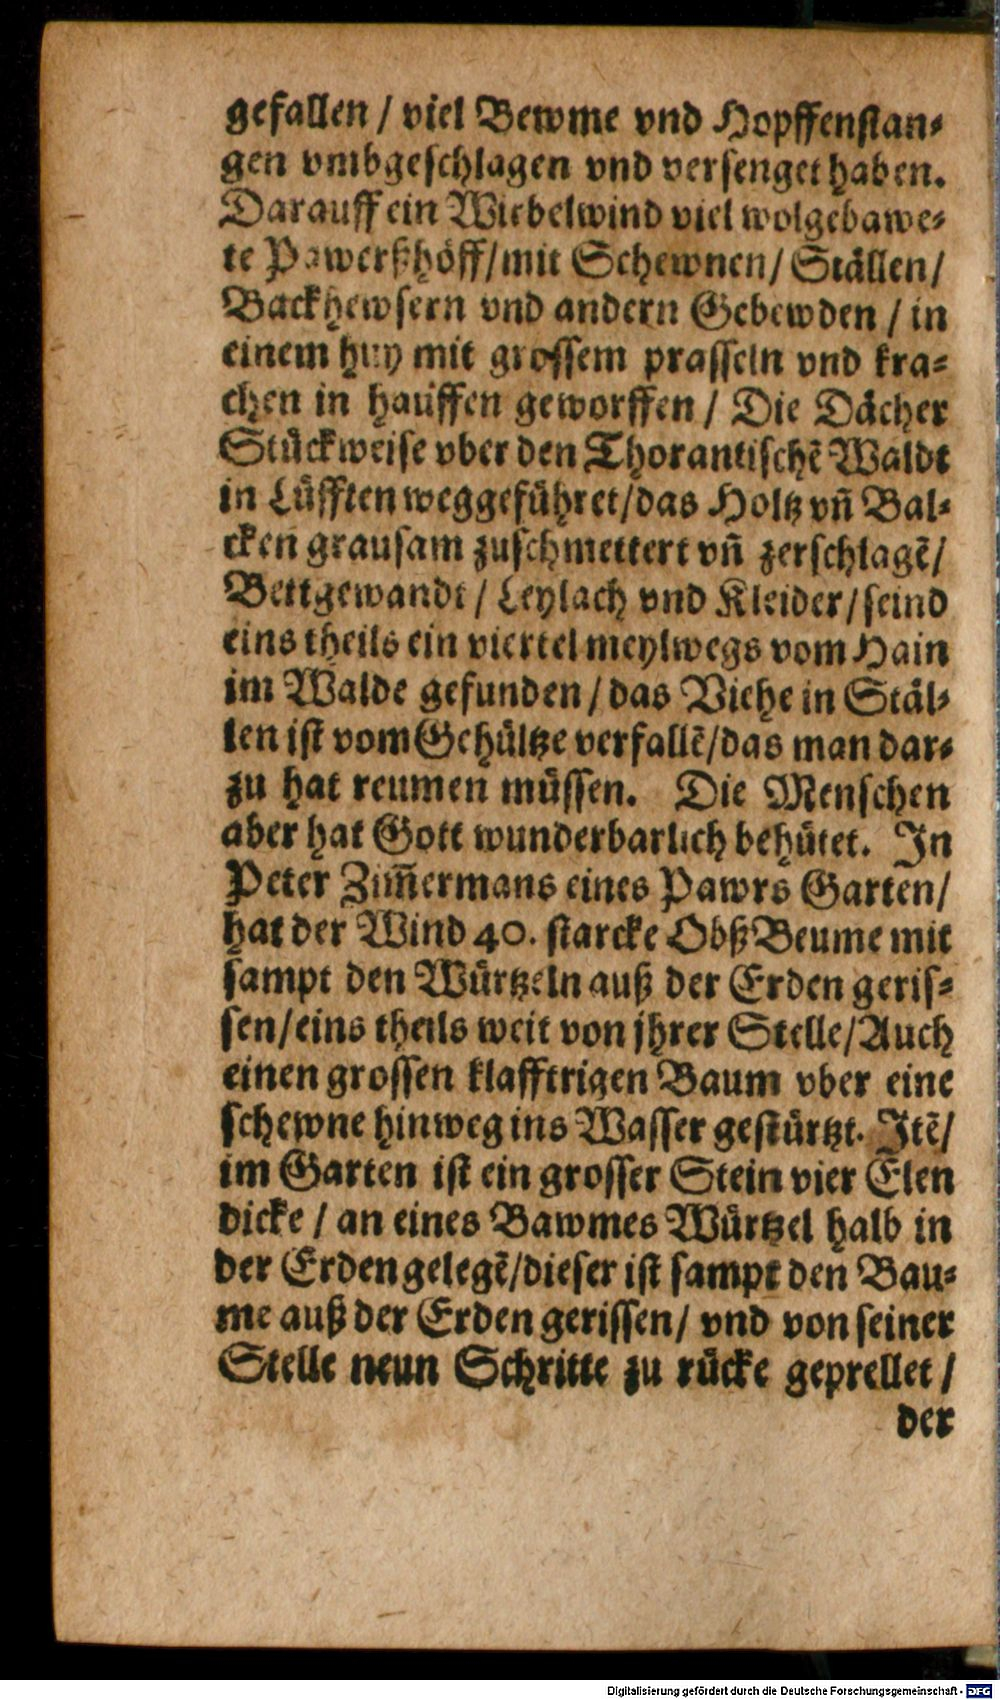 gefallen / viel Bewme vnd Hopffenstan⸗
gen vmbgeschlagen vnd versenget haben.
Darauff ein Wirbelwind viel wolgebawe⸗
te Pawerßhöff/mit Schewnen/ Ställen/
Backhewsern vnd andern Gebewden / in
einem huy mit grossem prasseln vnd kra⸗
chen in hauffen geworffen / Die Dächer
Stückweise vber den Thorantischẽ Waldt
in Lüfften weggeführet/das Holtz vñ Bal⸗
cken grausam zuschmettert vñ zerschlagẽ/
Bettgewandt / Leylach vnd Kleider/seind
eins theils ein viertel meylwegs vom Hain
im Walde gefunden / das Viehe in Stäl⸗
len ist vom Gehültze verfallẽ/das man dar⸗
zu hat reumen müssen. Die Menschen
aber hat Gott wunderbarlich behütet. In
Peter Zim̃ermans eines Pawrs Garten/
hat der Wind 40. starcke ObßBeume mit
sampt den Würtzeln auß der Erden geris⸗
sen/eins theils weit von jhrer Stelle/Auch
einen grossen klafftrigen Baum vber eine
schewne hinweg ins Wasser gestürtzt. Itẽ/
im Garten ist ein grosser Stein vier Elen
dicke / an eines Bawmes Würtzel halb in
der Erden gelegẽ/dieser ist sampt den Bau⸗
me auß der Erden gerissen/ vnd von seiner
Stelle neun Schritte zu rücke geprellet /
der
Digitalisierung gefördert durch die Deutsche Forschungsgemeinschaft - DFG